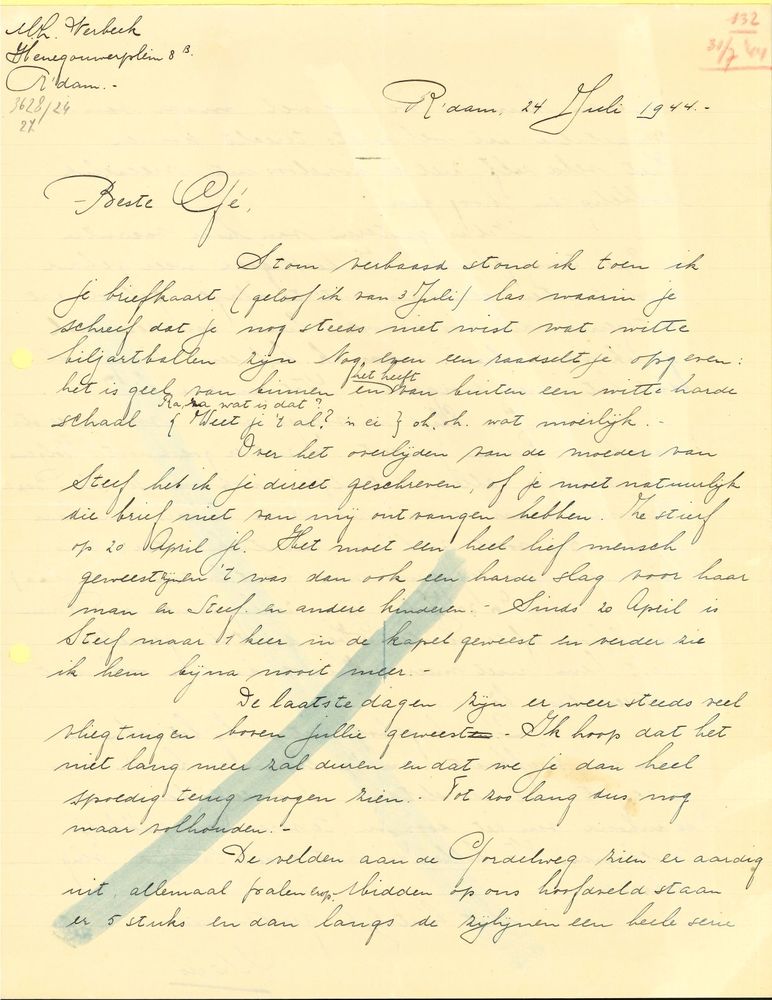 M.h. Verbeek
Henegouwerplein 8 B.
R'dam.-
3628/24
27
132
31/7 '44
R'dam, 24 Juli 1944.-
Beste Cfé,
Stom verbaasd stond ik toen ik
je briefkaart (geloof ik van 3 Juli) las waarin je
schreef dat je nog steeds niet wist wat witte
biljartballen zijn Nog even een raadseltje opgeven:
het is geel van binnen en het heeft van buiten een witte harde
schaal Ra, ra wat is dat? { Weet je 't al? 'n ei } oh, oh. wat moeilijk. -
Over het overlijden van de moeder van
Steef heb ik je direct geschreven, of je moet natuurlijk
die brief niet van mij ontvangen hebben. Ze stierf
op 20 April jl. Het moet een heel lief mensch
geweest zijn en 't was dan ook een harde slag voor haar
man en Steef en andere kinderen.- Sinds 20 April is
Steef maar 1 keer in de kapel geweest en verder zie
ik hem bijna nooit meer.-
De laatste dagen zijn er weer steeds veel
vliegtuigen boven jullie geweest - Ik hoop dat het
niet lang meer zal duren en dat we je dan heel
spoedig terug mogen zien.- Tot zoo lang dus nog
maar volhouden.-
De velden aan de Gordelweg zien er aardig
uit, allemaal palen erop. Midden op ons hoofdveld staan
er 5 stuks en dan langs de zijlijnen een heele serie